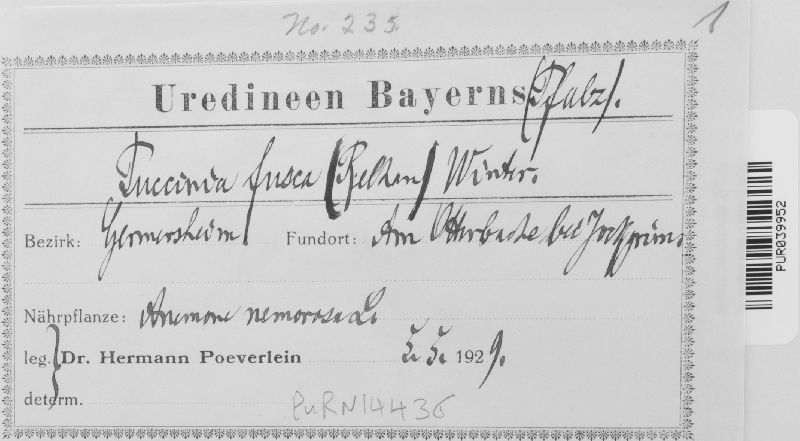 No. 235.
1
Uredineen Bayerns (Pfalz).
Puccinia fusca (Relhan) Winter.
Bezirk: Germersheim. Fundort: Am Otterbache bei Jockgrim.
Nährpflanze: Anemone nemorosa L.
leg. Dr. Hermann Poeverlein 5. 1929.
determ.
PuRN14436
PUR039952